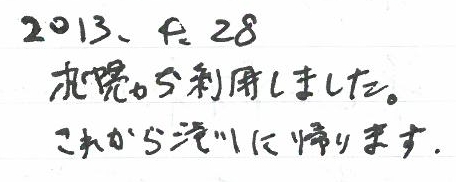 2013、4、28
札幌から利用しました。
これから滝川に帰ります.